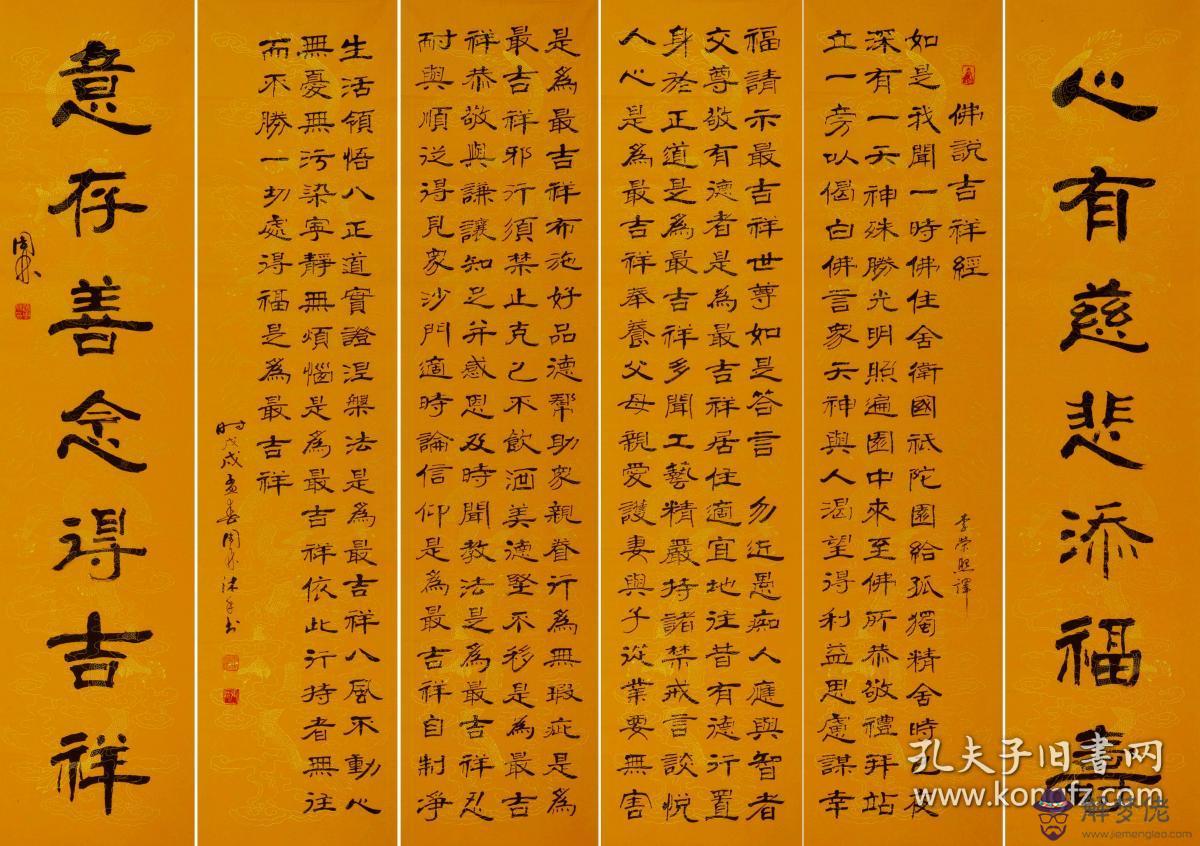 心有慈悲添福壽
佛說吉祥經
李榮熙譯
如是我聞一時佛住舍衛國祇陀園給孤獨精舍時至夜
深有一天神殊勝光明照遍園中來至佛所恭敬禮拜站
立一旁以偈白佛言眾天神與人渴望得利益思慮謀幸
福請示最吉祥世尊如是答言 勿近愚痴人應與智者
交尊敬有德者是為最吉祥居住適宜地往昔有德行置
身於正道是為最吉祥多聞工藝精嚴持諸禁戒言談悅
人心是為最吉祥奉養父母親愛護妻與子從業要無害
是為最吉祥布施好品德幫助眾親眷行為無瑕疵是為
最吉祥邪行須禁止克己不飲酒美德堅不移是為最吉
祥恭敬與謙讓知足并感恩及時聞教法是為最吉祥忍
耐與順從得見眾沙門適時論信仰是為最吉祥自制淨
生活領悟八正道實證涅槃法是為最吉祥八風不動心
無憂無污染寧靜無煩惱是為最吉祥依此行持者無往
而不勝一切處得福是為最吉祥
时戊戌孟春周沐手书
意存善念得吉祥
孔夫子旧书网
www.kongfz.com
解梦佬
www.jiemenglao.com